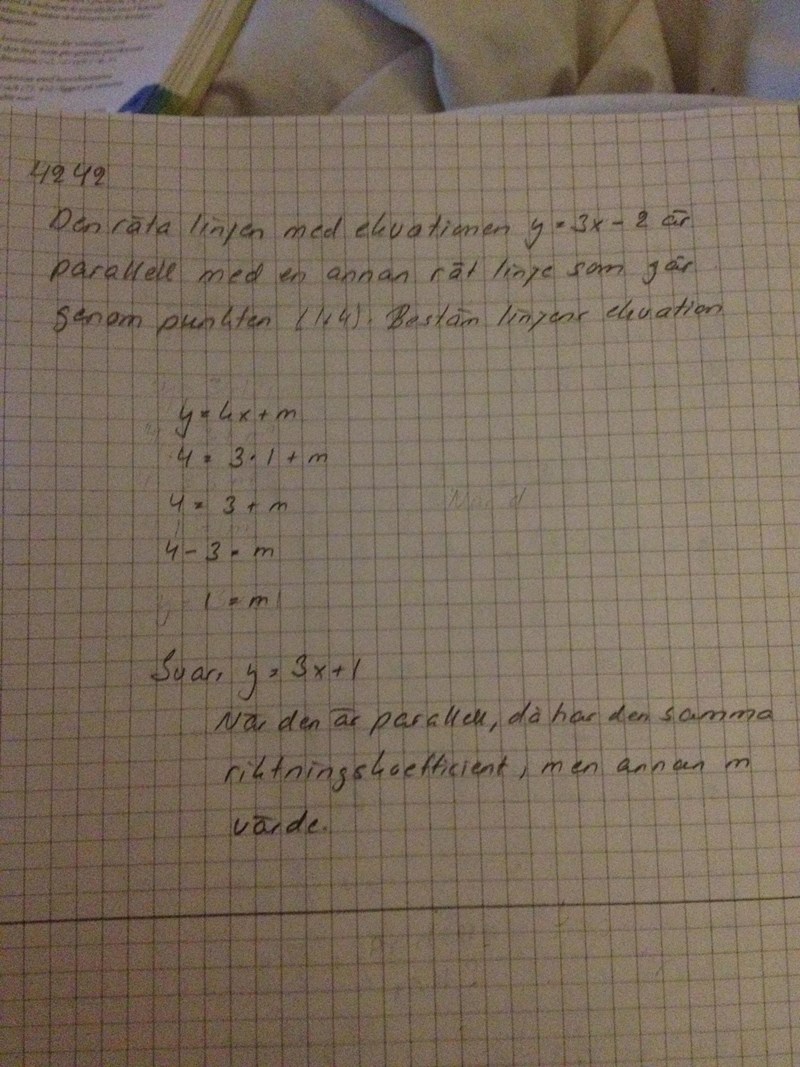 4242
Den räta linjen med ekvationen y = 3x - 2 är
parallell med en annan rät linje som går
genom punkten (1,4). Bestäm linjens ekvation
y = kx + m
4 = 3·1 + m
4 = 3 + m
4 - 3 = m
1 = m
Svar, y = 3x+1
När den är parallell, då har den samma
riktningskoefficient, men annan m
värde.